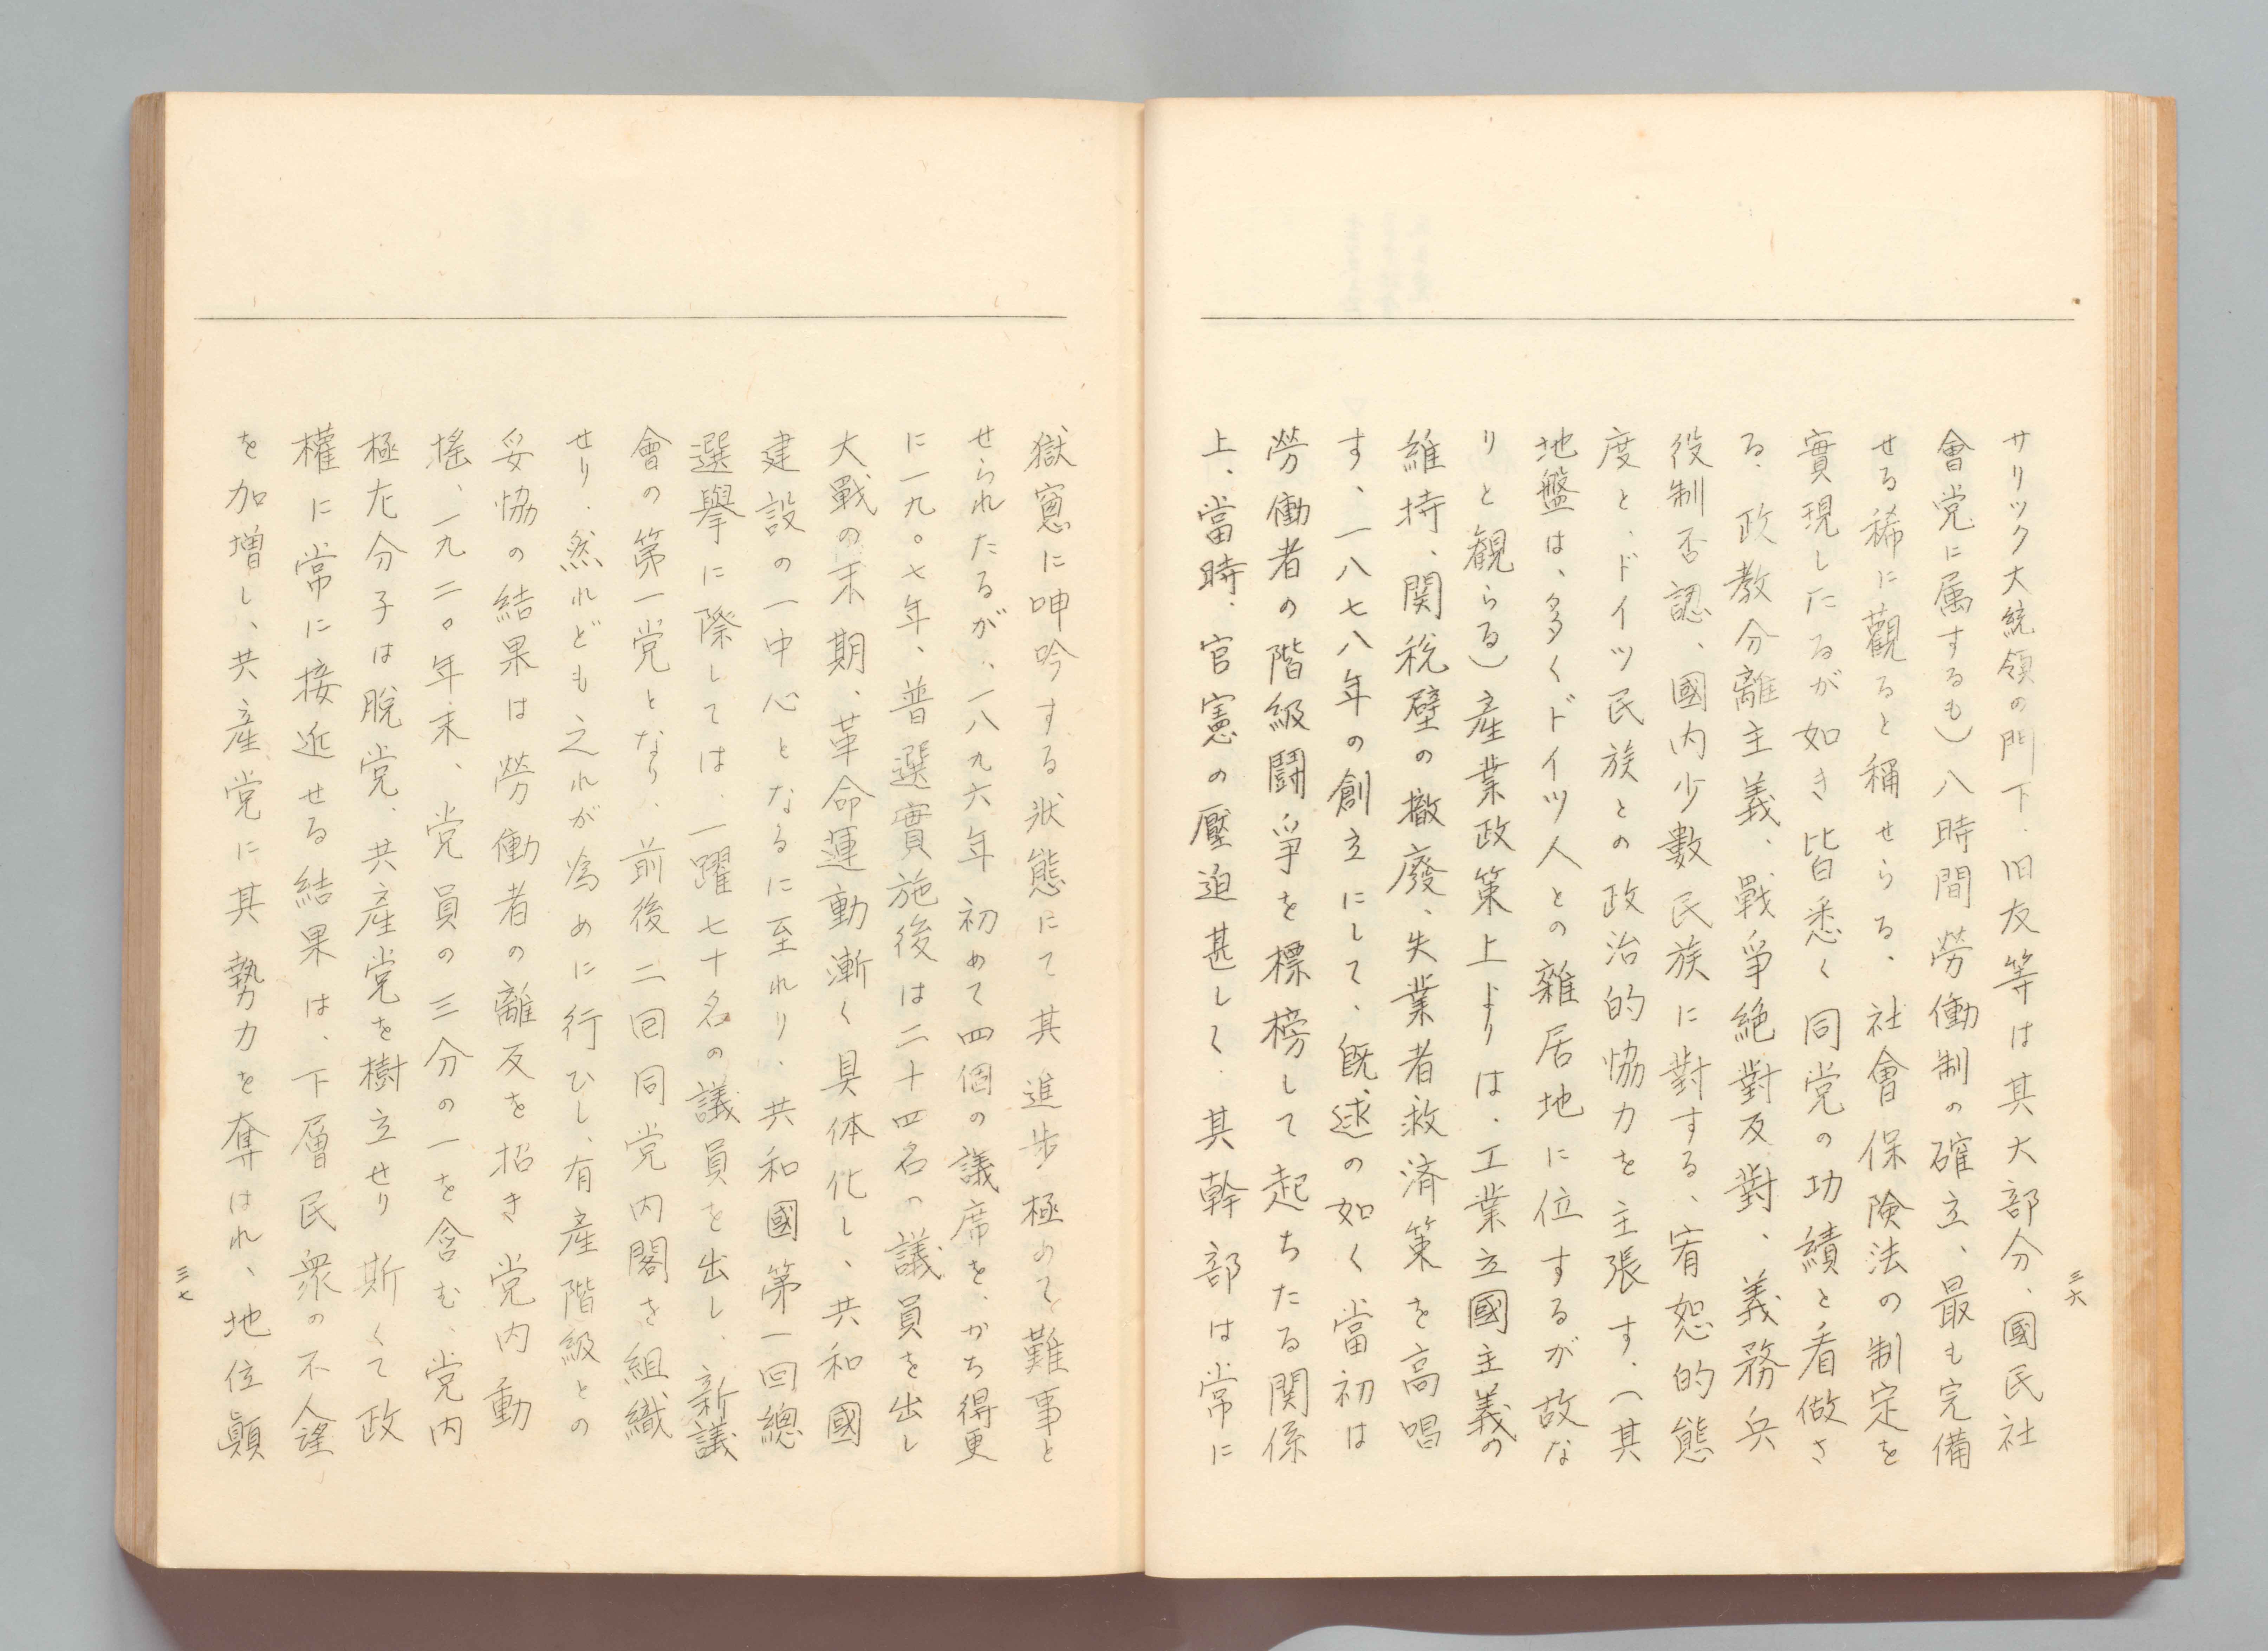 三六
サリック大統領の門下．旧友等は其大部分、國民社
會党に属するも）八時間勞働制の確立、最も完備
せる稀に觀ると稱せらる、社會保険法の制定を
實現したるが如き皆悉く同党の功績と看做さ
る．政教分離主義．戰爭絶對反對、義務兵
役制否認、國内少數民族に對する、宥恕的態
度と、ドイツ民族との政治的協力を主張す．（其
地盤は、多くドイツ人との雜居地に位するが故な
りと観らる）產業政策上よりは、工業立國主義の
維持、関税壁の撤廢、失業者救済策を高唱
す、一八七八年の創立にして、既述の如く當初は
勞働者の階級鬪爭を標榜して起ちたる関係
上、當時．官憲の壓迫甚しく．其幹部は常に
獄窓に呻吟する状態にて其進步極めて難事と
せられたるが、一八九六年初めて四個の議席を、かち得更
に一九〇七年、普選實施後は二十四名の議員を出し
大戰の末期、革命運動漸く具体化し、共和國
建設の一中心となるに至れり．共和國第一回總
選擧に際しては．一躍七十名の議員を出し、新議
會の第一党となり．前後二回同党内閣を組織
せり．然れども之れが為めに行ひし、有產階級との
妥協の結果は勞働者の離反を招き党内動
搖、一九二〇年末、党員の三分の一を含む、党内
極左分子は脱党．共產党を樹立せり斯くて政
權に常に接近せる結果は、下層民衆の不人望
を加増し、共產党に其勢力を奪はれ、地位顚
三七